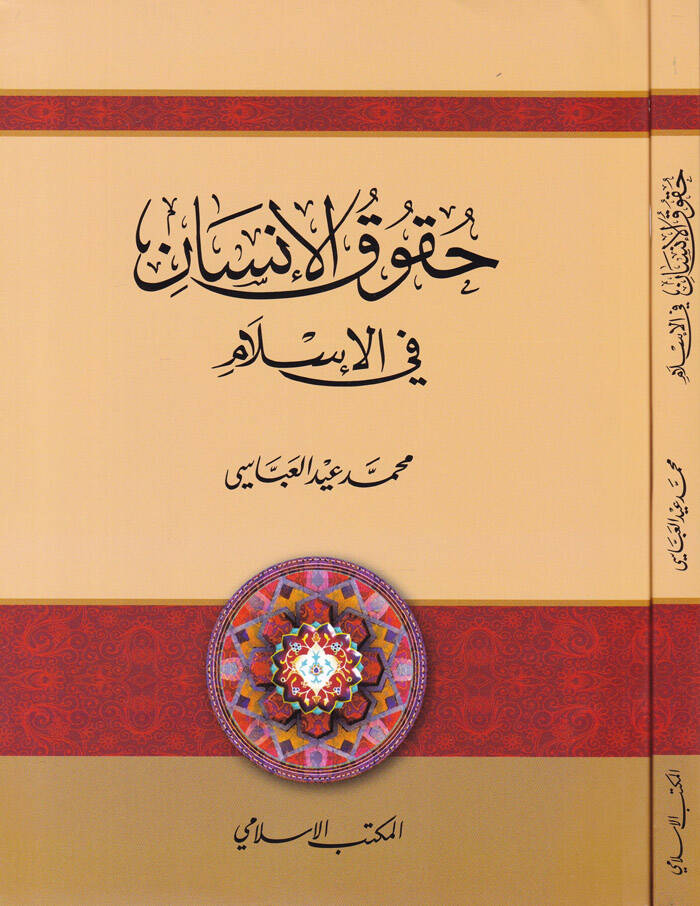 حُقُوقُ الإِنسَانِ
في الإسلامِ
محمَّد عيْد العَبَّاسي
المكتب الاسلامي
حُقُوقُ الإِنسَانِ في الإسلامِ
محمَّد عيْد العَبَّاسي
المكتب الاسلامي